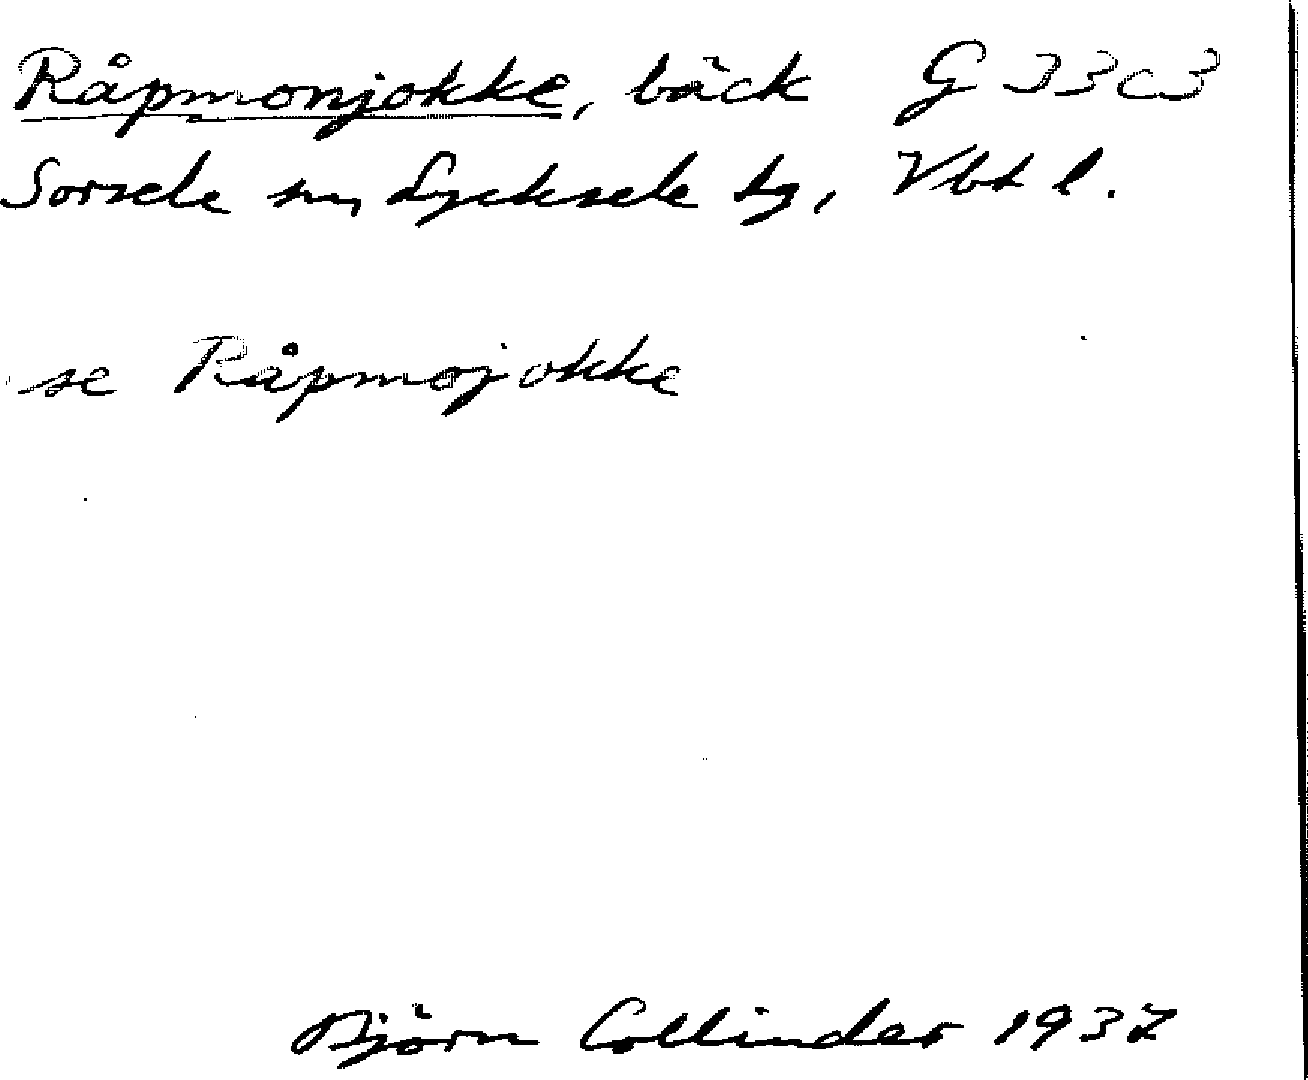 Råpmonjokke, bäck G 33c3
Sorsele sn, Lycksele tg, Vbt l.
se Råpmojokke
Björn Collinder 1937